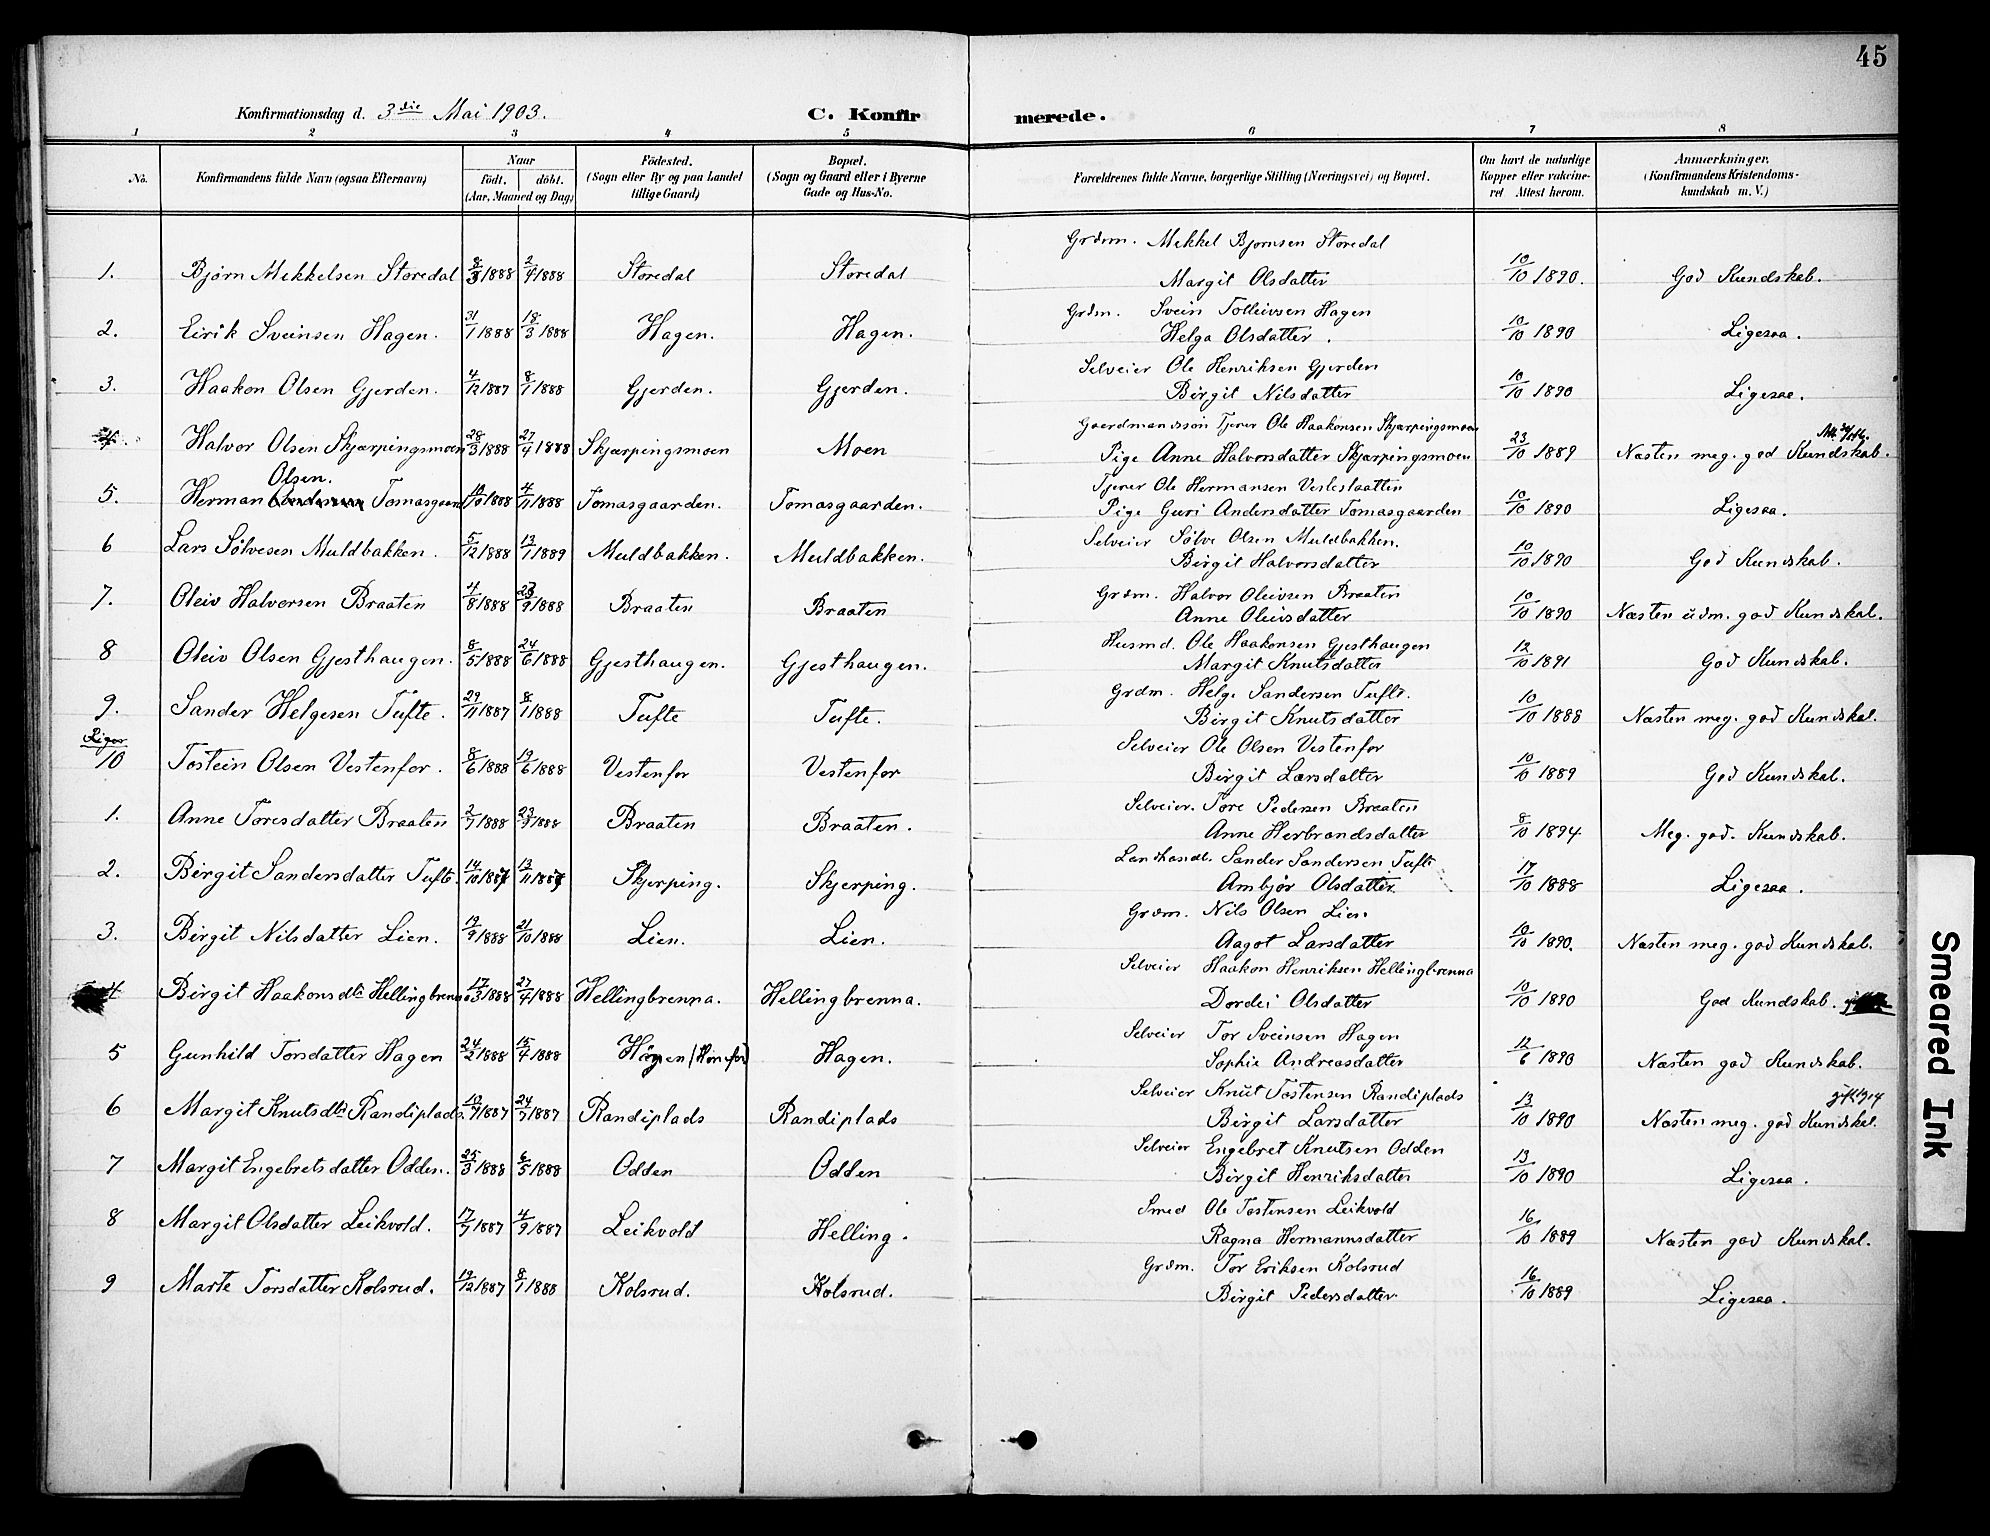 45
Konfirmationsdag d. 3die Mai 1903. C. Konfirmerede.
1 2 3 4 5 6 7 8
No. Konfirmandens fulde Navn (ogsaa Efternavn) Naar födt, döbt. (Aar, Maaned og Dag) Födested. (Sogn eller By og paa Landet tillige Gaard) Bopæl. (Sogn og Gaard eller i Byerne Gade og Hus-No. Forældrenes fulde Navne, borgerlige Stilling (Næringsvei) og Bopæl. Om havt de naturlige Kopper eller vakcineret Attest herom. Anmærkninger. (Konfirmandens Kristendomskundskab m. V.)
Grdm. Mekkel Bjørnsen Storedal
1. Bjørn Mekkelsen Storedal 8/3 1888 2/4 1888 Storedal Storedal Margit Olsdatter 10/10 1890. God Kundskab.
Grdm. Svein Tolleivsen Hagen
2. Eirik Sveinsen Hagen. 31/1 1888 18/3 1888 Hagen. Hagen. Helga Olsdatter. 10/10 1890 Ligesaa.
Selveier Ole Henriksen Gjerden
3. Haakon Olsen Gjerden. 4/12 1887 8/1 1888 Gjerden. Gjerden. Birgit Nilsdatter 10/10 1890 Ligesaa.
Gaardmandssøn Tjener Ole Haakonsen Skjærpingsmoen
4. Halvor Olsen Skjærpingsmoen 28/3 1888 27/4 1888 Skjærpingsmoen Moen Pige Anne Halvorsdatter Skjærpingsmoen 23/10 1889 Næsten meg. god Kundskab.
Olsen.
Tjener Ole Hermansen Veslesлaatten
5. Herman Tomasgaard 4/11 1888 Tomasgaarden. Tomasgaarden. Pige Guri Andersdatter Tomasgaarden 10/10 1890 Ligesaa.
Selveier Sølve Olsen Muldbakken.
6 Lars Sølvesen Muldbakken. 5/12 1888 13/1 1889 Muldbakken. Muldbakken. Birgit Halvorsdatter 10/10 1890 God Kundskab.
Grdm. Halvor Oleivsen Braaten
7. Oleiv Halvorsen Braaten 4/8 1888 23/9 1888 Braaten Braaten Anne Oleivsdatter 10/10 1890 Næsten udm. god Kundskab.
Husmd. Ole Haakonsen Gjesthaugen
8 Oleiv Olsen Gjesthaugen. 8/5 1888 24/6 1888 Gjesthaugen. Gjesthaugen. Margit Knutsdatter 12/10 1891 God Kundskab.
Grdm. Helge Sandersen Tufte.
9. Sander Helgesen Tufte. 29/11 1887 8/1 1888 Tufte Tufte. Birgit Knutsdatter 10/10 1888 Næsten meg. god Kundskab.
Selveier Ole Olsen Vestenfor
10 Tostein Olsen Vestenfor. 8/6 1888 19/6 1888 Vestenfor Vestenfor Birgit Larsdatter 10/10 1889 God Kundskab.
Piger
Selveier. Tore Pedersen Braaten
1. Anne Toresdatter Braaten 2/7 1888 23/9 1888 Braaten Braaten. Anne Herbrandsdatter 8/10 1894 Meg. god. Kundskab.
Landhandl. Sander Sandersen Tufte
2. Birgit Sandersdatter Tufte. 14/10 1887 13/11 1887 Skjerping. Skjerping. Ambjør Olsdatter. 17/10 1888 Ligesaa.
Grdm. Nils Olsen Lien
3. Birgit Nilsdatter Lien. 19/9 1888 21/10 1888 Lien. Lien. Aagot Larsdatter 10/10 1890. Næsten meg. god Kundskab.
Selveier Haakon Henriksen Hellingbrenna
4 Birgit Haakonsdtr Hellingbrenna 17/3 1888 27/4 1888 Hellingbrenna. Hellingbrenna. Dordei Olsdatter 10/10 1890 God Kundskab.
Selveier Tor Sveinsen Hagen
5 Gunhild Torsdatter Hagen 24/2 1888 15/4 1888 Hagen (Hønefos) Hagen. Sophie Andreasdatter 12/6 1890 Næsten god Kundskab.
Selveier Knut Tostensen Randiplads gift 1914
6 Margit Knutsdtr Randiplads. 10/7 1887 24/7 1887 Randiplads Randiplads Birgit Larsdatter 13/10 1890 Næsten meg. god Kundskab.
Selveier Engebret Knutsen Odden
7 Margit Engebretsdatter Odden. 25/3 1888 6/5 1888 Odden Odden Birgit Henriksdatter 13/10 1890 Ligesaa.
Smed Ole Tostensen Leikvold
8 Margit Olsdatter Leikvold. 17/7 1887 4/9 1887 Leikvold Helling. Ragna Hermannsdatter 16/10 1889 Næsten god Kundskab.
Grdm. Tor Eriksen Kolsrud
9 Marte Torsdatter Kolsrud. 19/12 1887 8/1 1888 Kolsrud. Kolsrud. Birgit Pedersdatter 16/10 1889 Ligesaa.
Smeared Ink